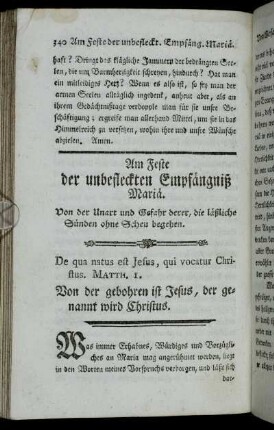 340 Am Feste der unbefleckt. Empfäng. Mariä.
haft? Dringt das klägliche Jammern der bedrängten See-
len, die um Barmherzigkeit schreyen, hindurch? Hat man
ein mitleidiges Herz? Wenn es also ist, so sey man der
armen Seelen alltäglich ingedenk, anheut aber, als an
ihrem Gedächtnißtage verdopple man für sie unsre Be-
schäftigung; ergreife man allerhand Mittel, um sie in das
Himmelreich zu versetzen, wohin ihre und unsre Wünsche
abzielen. Amen.
Am Feste
der unbefleckten Empfängniß
Mariä.
Von der Unart und Gefahr derer, die läßliche
Sünden ohne Scheu begehen.
De qua natus est Jesus, qui vocatur Chri-
stus. MATTH. 1.
Von der gebohren ist Jesus, der ge-
nannt wird Christus.
Was immer Erhabnes, Würdiges und Vorzügli-
ches an Maria mag angerühmet werden, liegt
in den Worten meines Vorspruchs verborgen, und läßt sich
dar-